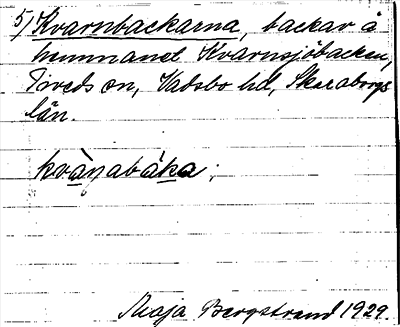 5) Kvarnbackarna, backar å
hemmanet Kvarnsjöbacken,
Tiveds sn, Vadsbo hd, Skaraborgs
län.
kvàṇabàka.
Maja Bergstrand 1929.